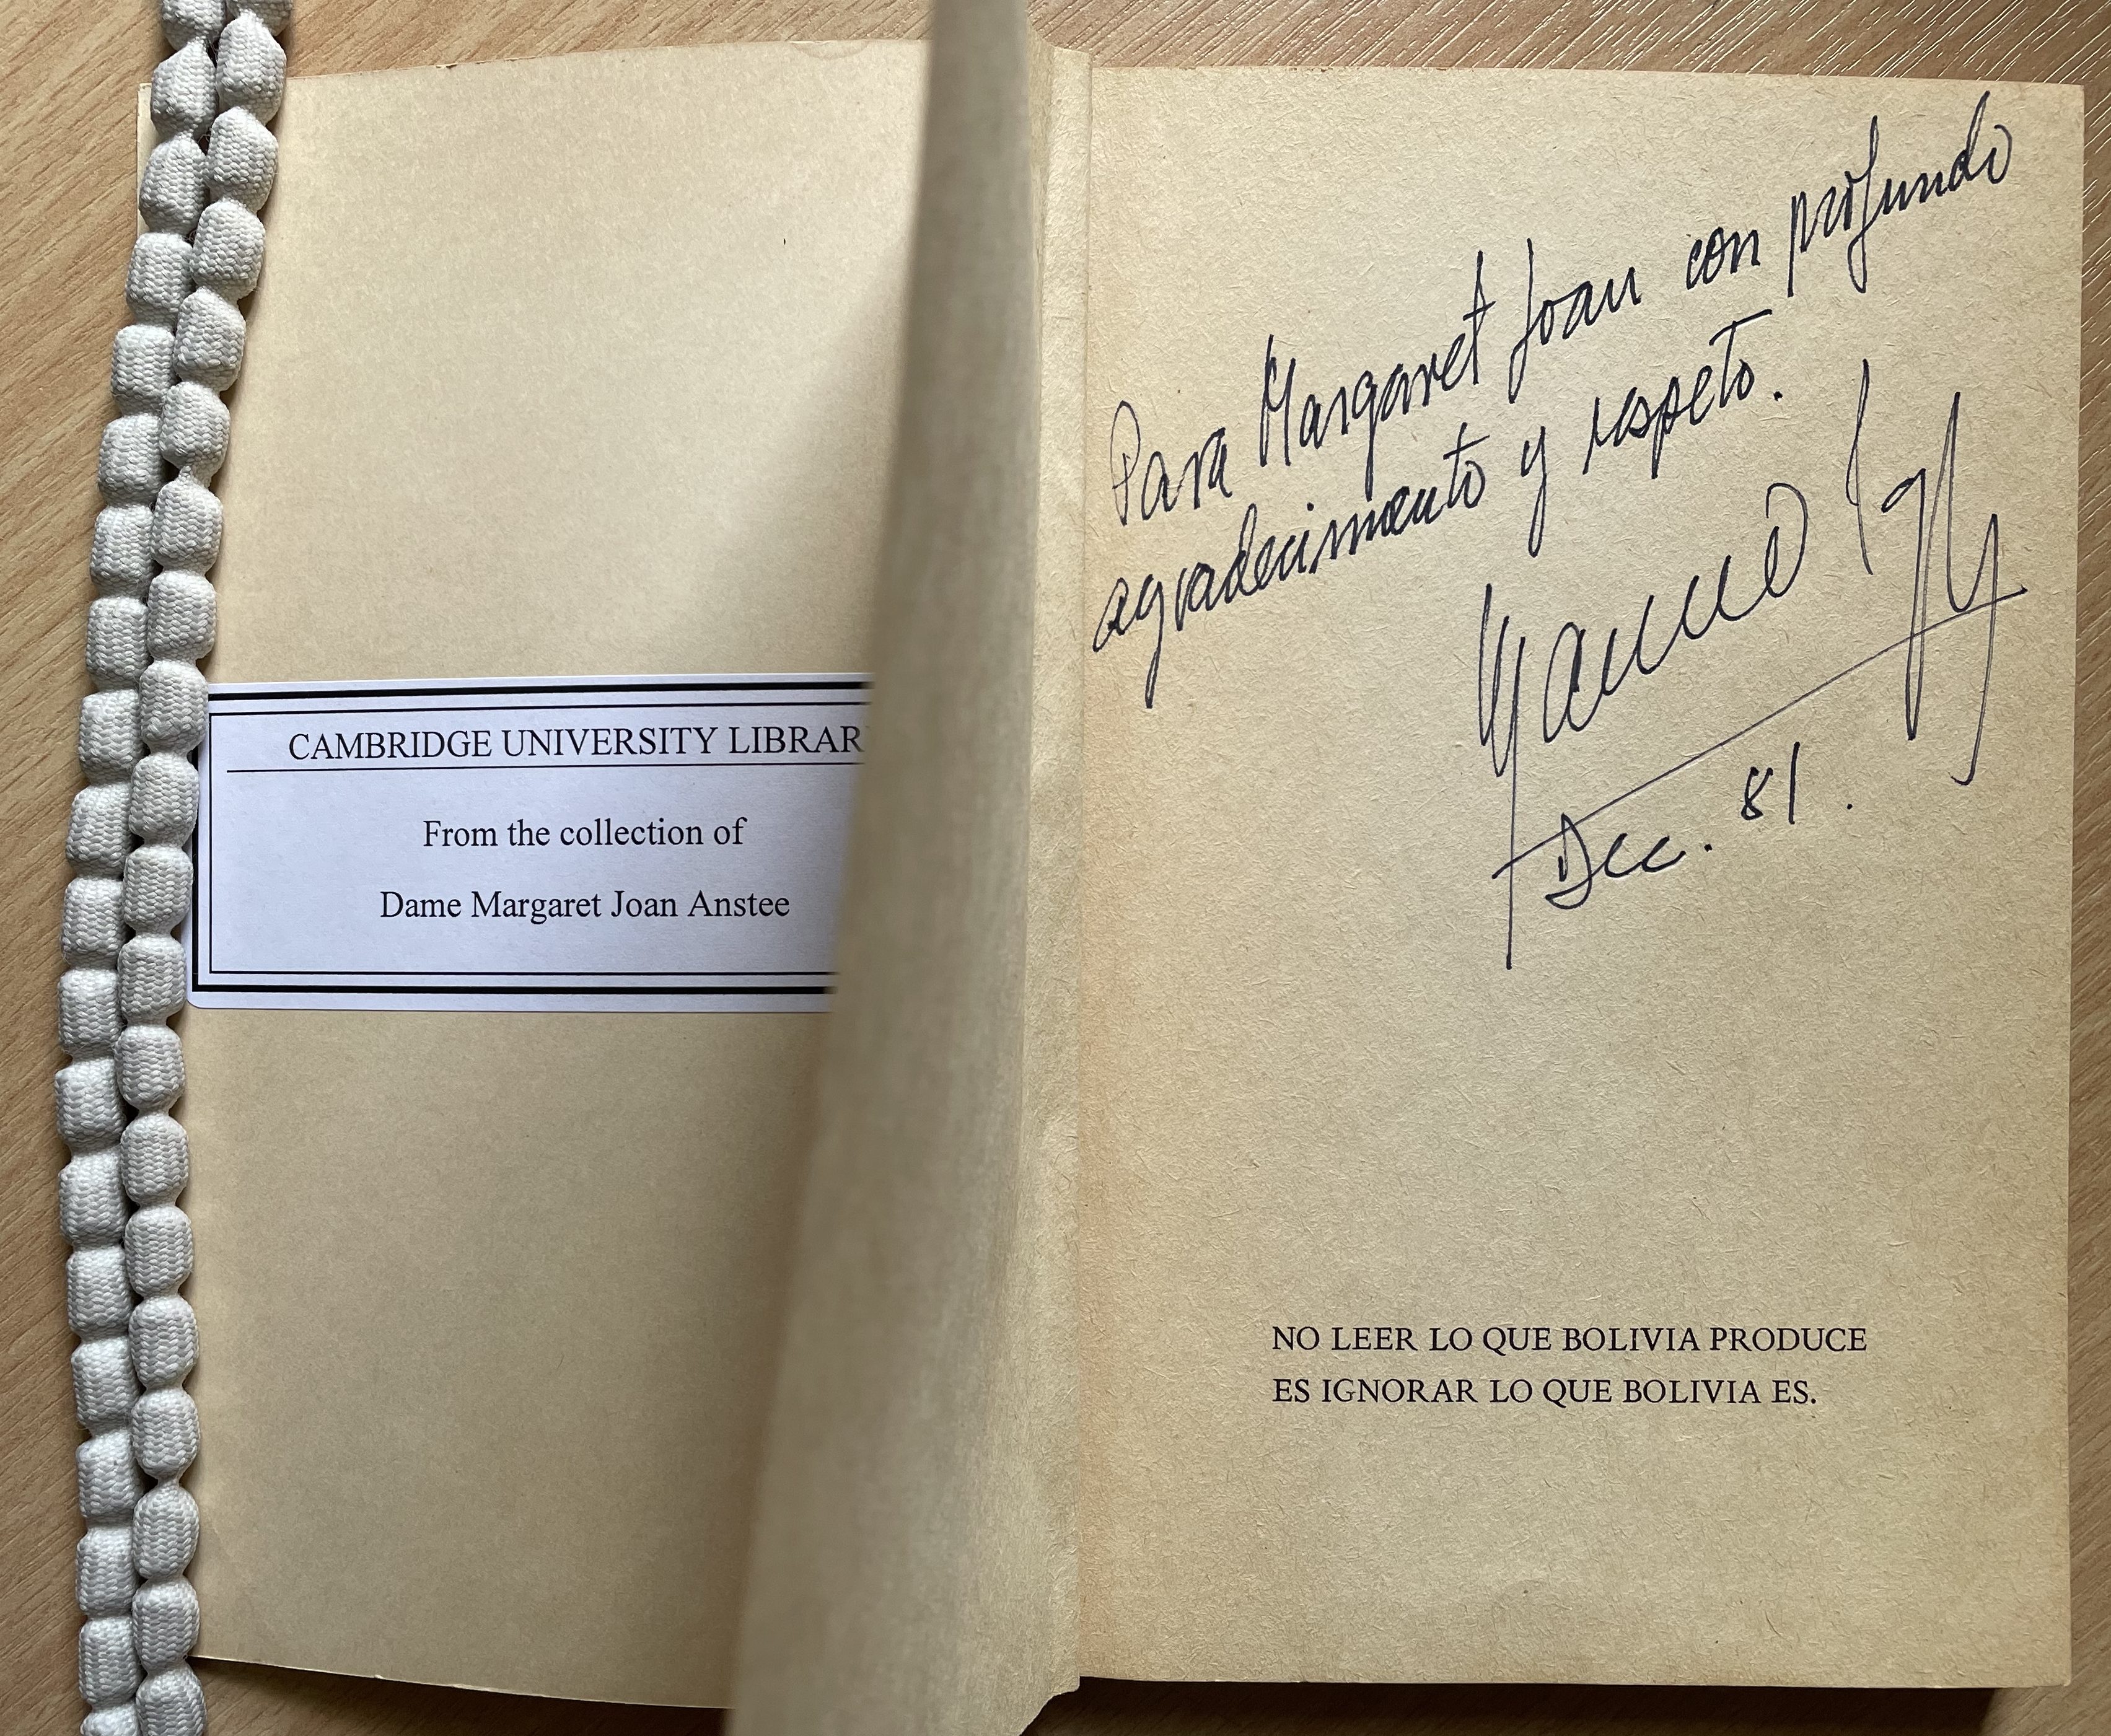 CAMBRIDGE UNIVERSITY LIBRAR
From the collection of
Dame Margaret Joan Anstee
Para Margaret Joan con profundo
agradecimiento y respeto.
Dec. 81.
NO LEER LO QUE BOLIVIA PRODUCE
ES IGNORAR LO QUE BOLIVIA ES.